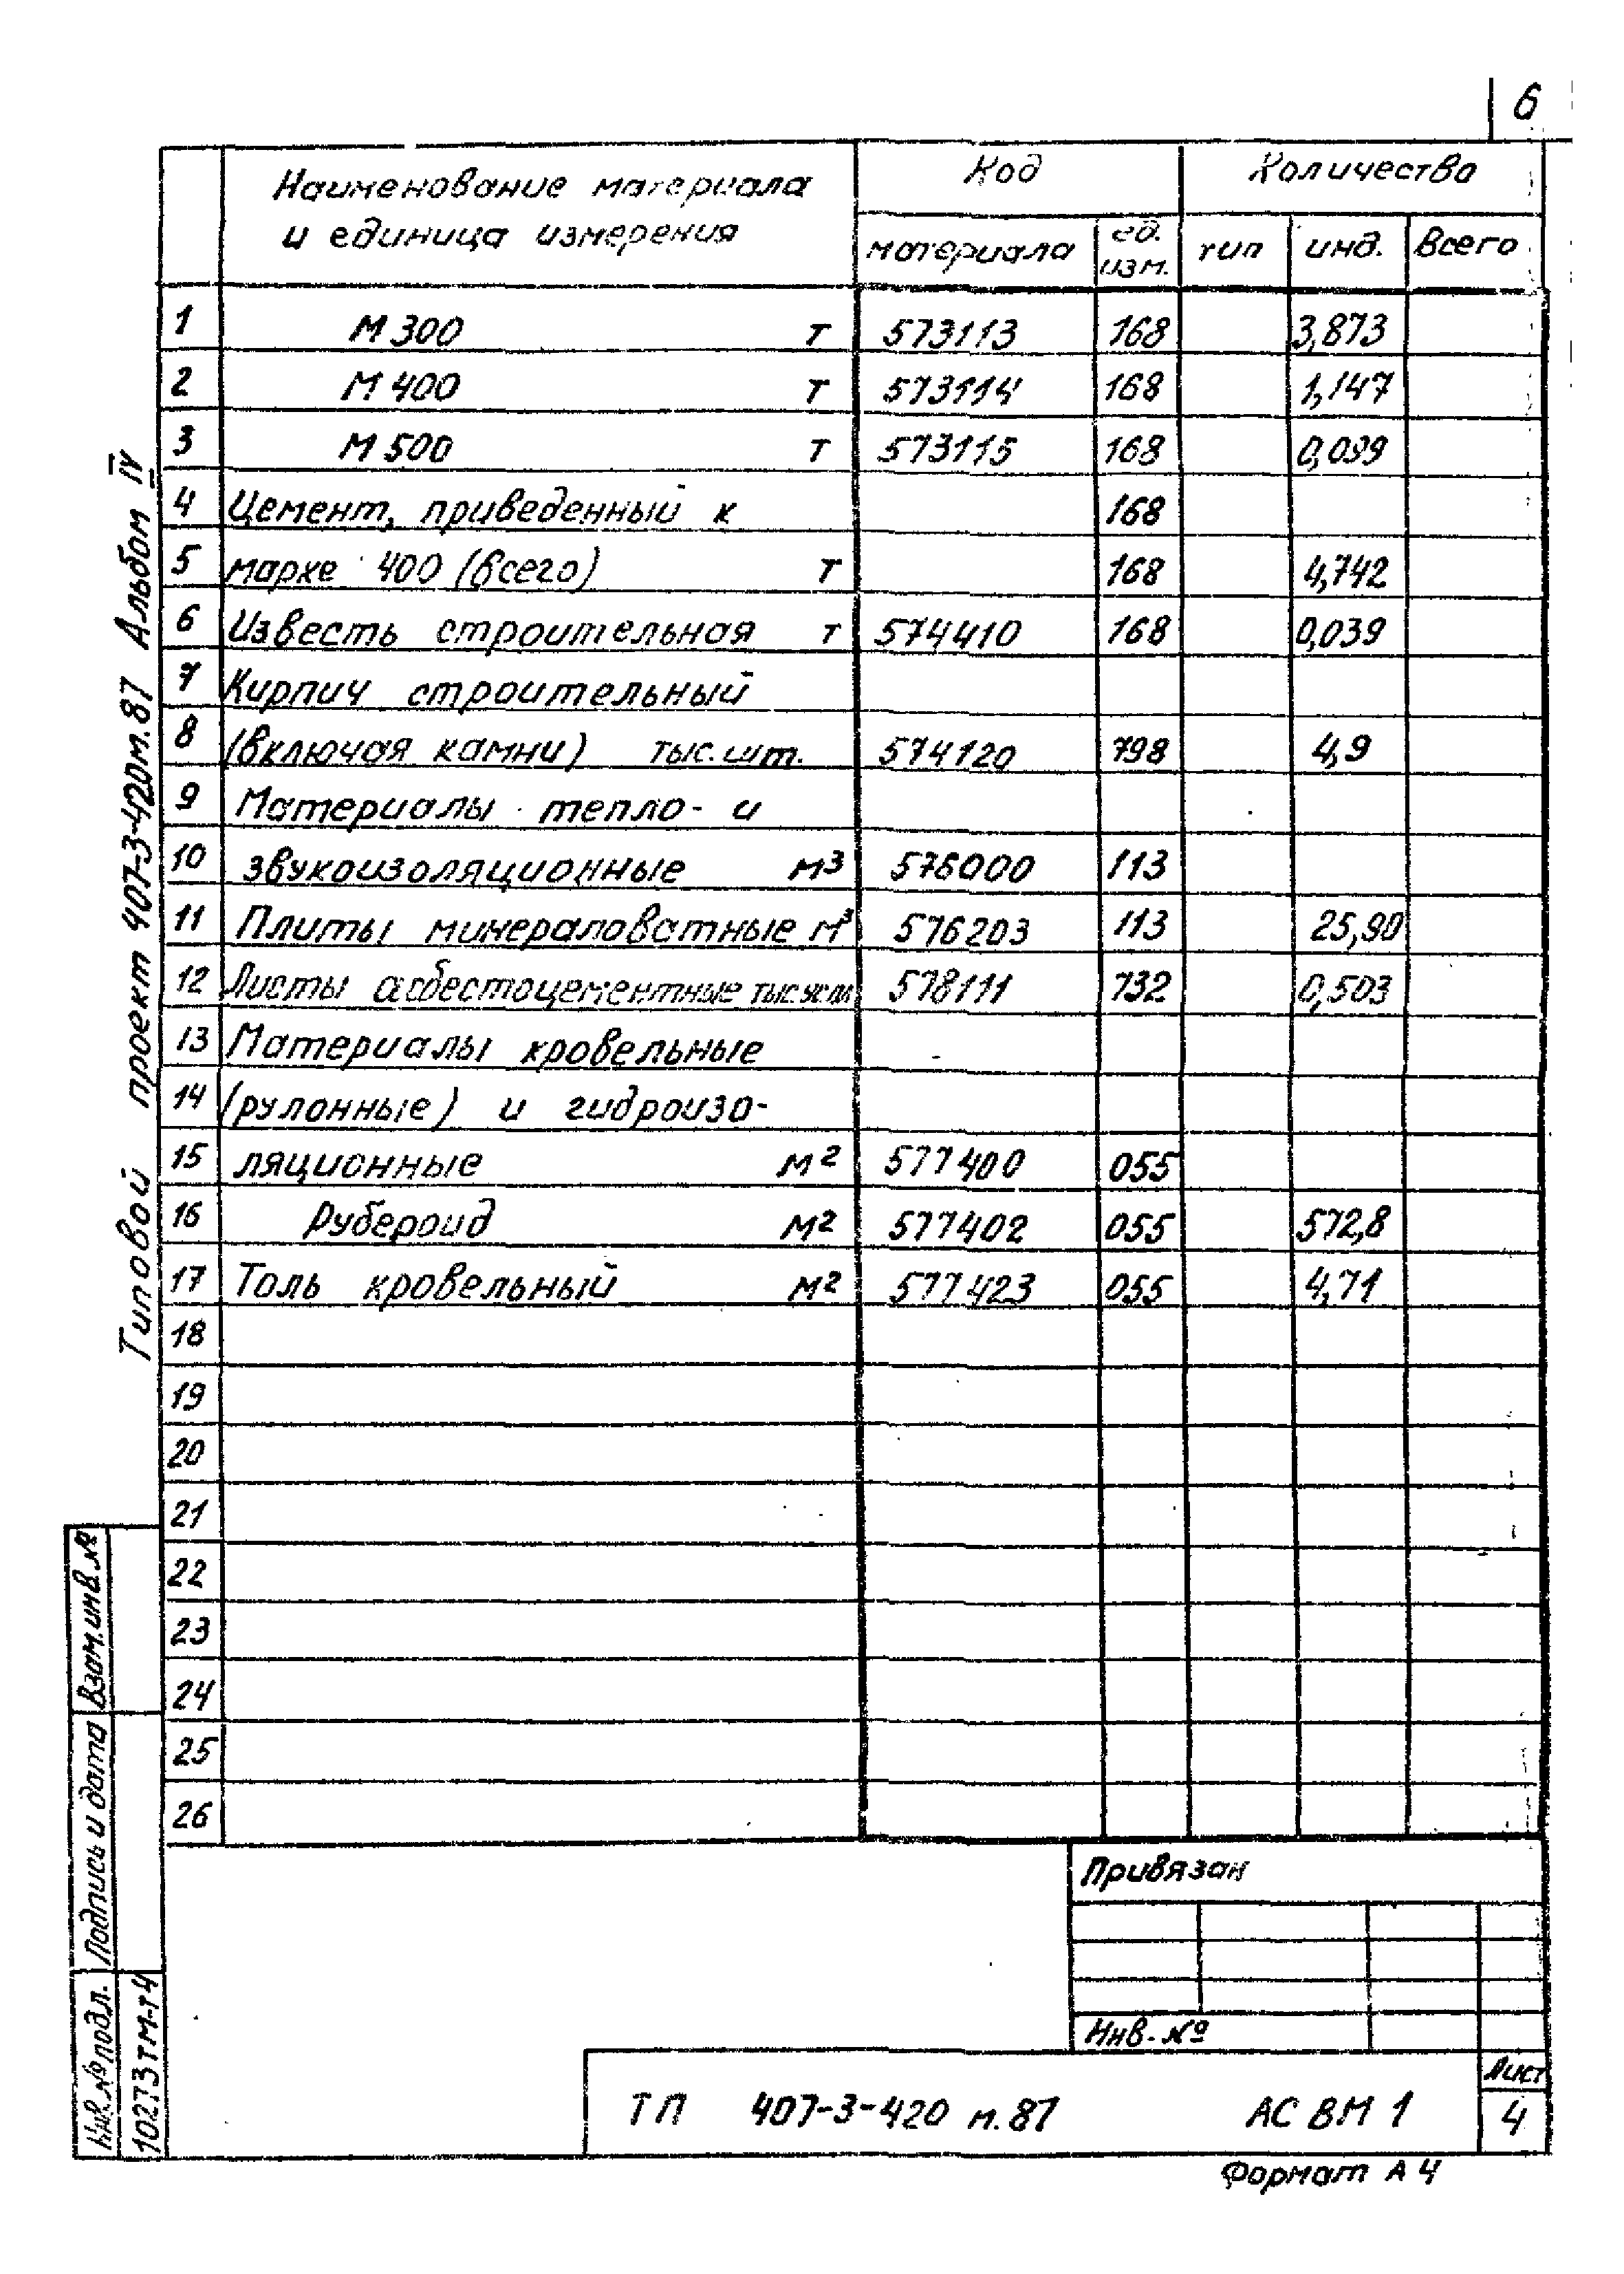 6
Наименование материала и единица измерения
Код
Количество
материала
ед. изм.
тип
инд.
Всего
1 М 300 т 573113 168 3,873
2 М 400 т 573114 168 1,147
3 М 500 т 573115 168 0,099
4 Цемент, приведенный к 168
5 марке 400 (всего) т 168 4,742
6 Известь строительная т 574410 168 0,039
7 Кирпич строительный
8 (включая камни) тыс.шт. 574120 798 4,9
9 Материалы тепло- и
10 звукоизоляционные м³ 576000 113
11 Плиты минераловатные м³ 576203 113 25,90
12 Листы асбестоцементные 578111 732 0,503
13 Материалы кровельные
14 (рулонные) и гидроизо-
15 ляционные м² 577400 055
16 Рубероид м² 577402 055 572,8
17 Толь кровельный м² 577423 055 4,71
18
19
20
21
22
23
24
25
26
Типовой проект 407-3-420м.87 Альбом IV
Взам.инв.№
Подпись и дата
Инв.№подл.
10273тм-т4
Привязан
Инв.№
ТП 407-3-420 м.87 АС ВМ 1
Лист
4
Формат А4